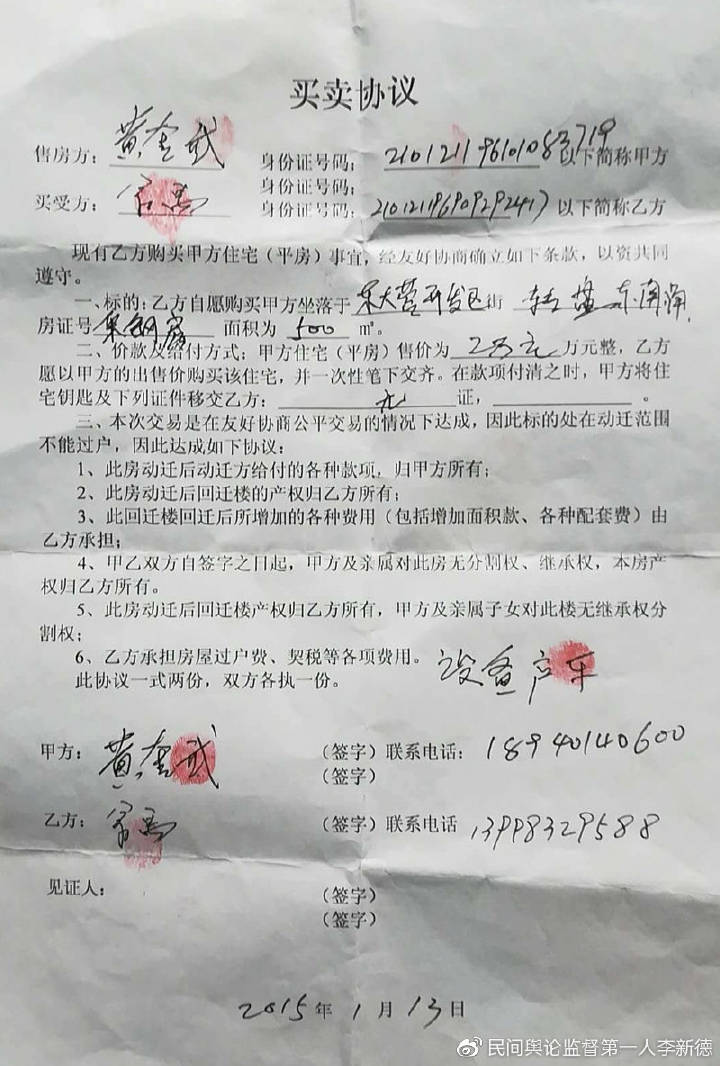 买卖协议
售房方：黄奎武 身份证号码： 210121196101083719 以下简称甲方
身份证号码：
买受方： 身份证号码：210121196909292417 以下简称乙方
现有乙方购买甲方住宅（平房）事宜，经友好协商确立如下条款，以资共同
遵守。
一、标的：乙方自愿购买甲方坐落于 开发区街 转盘东南角
房证号 面积为 500 ㎡。
二、价款及给付方式：甲方住宅（平房）售价为 2万元 万元整，乙方
愿以甲方的出售价购买该住宅，并一次性笔下交齐。在款项付清之时，甲方将住
宅钥匙及下列证件移交乙方： 无 证， 。
三、本次交易是在友好协商公平交易的情况下达成，因此标的处在动迁范围
不能过户，因此达成如下协议：
1、此房动迁后动迁方给付的各种款项，归甲方所有；
2、此房动迁后回迁楼的产权归乙方所有；
3、此回迁楼回迁后所增加的各种费用（包括增加面积款、各种配套费）由
乙方承担；
4、甲乙双方自签字之日起，甲方及亲属对此房无分割权、继承权，本房产
权归乙方所有。
5、此房动迁后回迁楼产权归乙方所有，甲方及亲属子女对此楼无继承权分
割权；
6、乙方承担房屋过户费、契税等各项费用。 设备
此协议一式两份，双方各执一份。
甲方： 黄奎武 （签字）联系电话： 18940140600
（签字）
乙方： （签字）联系电话 13998329588
见证人： （签字）
（签字）
2015年 1 月 13日
民间舆论监督第一人李新德